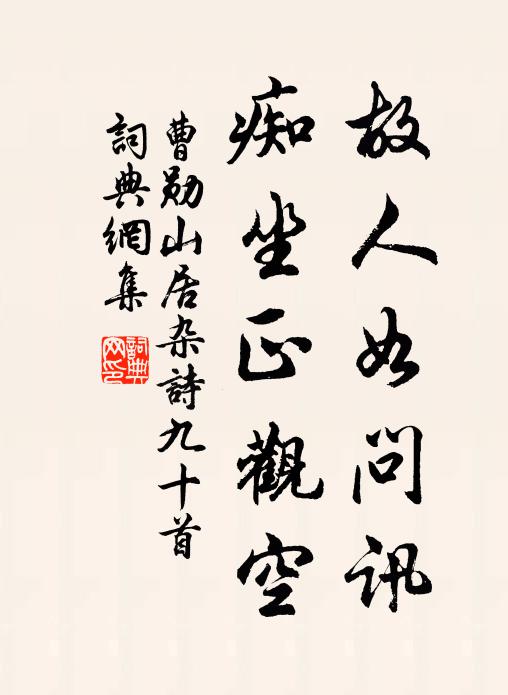 故人如問訊
痴坐正觀空
曹勛山居杂詩九十首
詞典網集
詞典網印